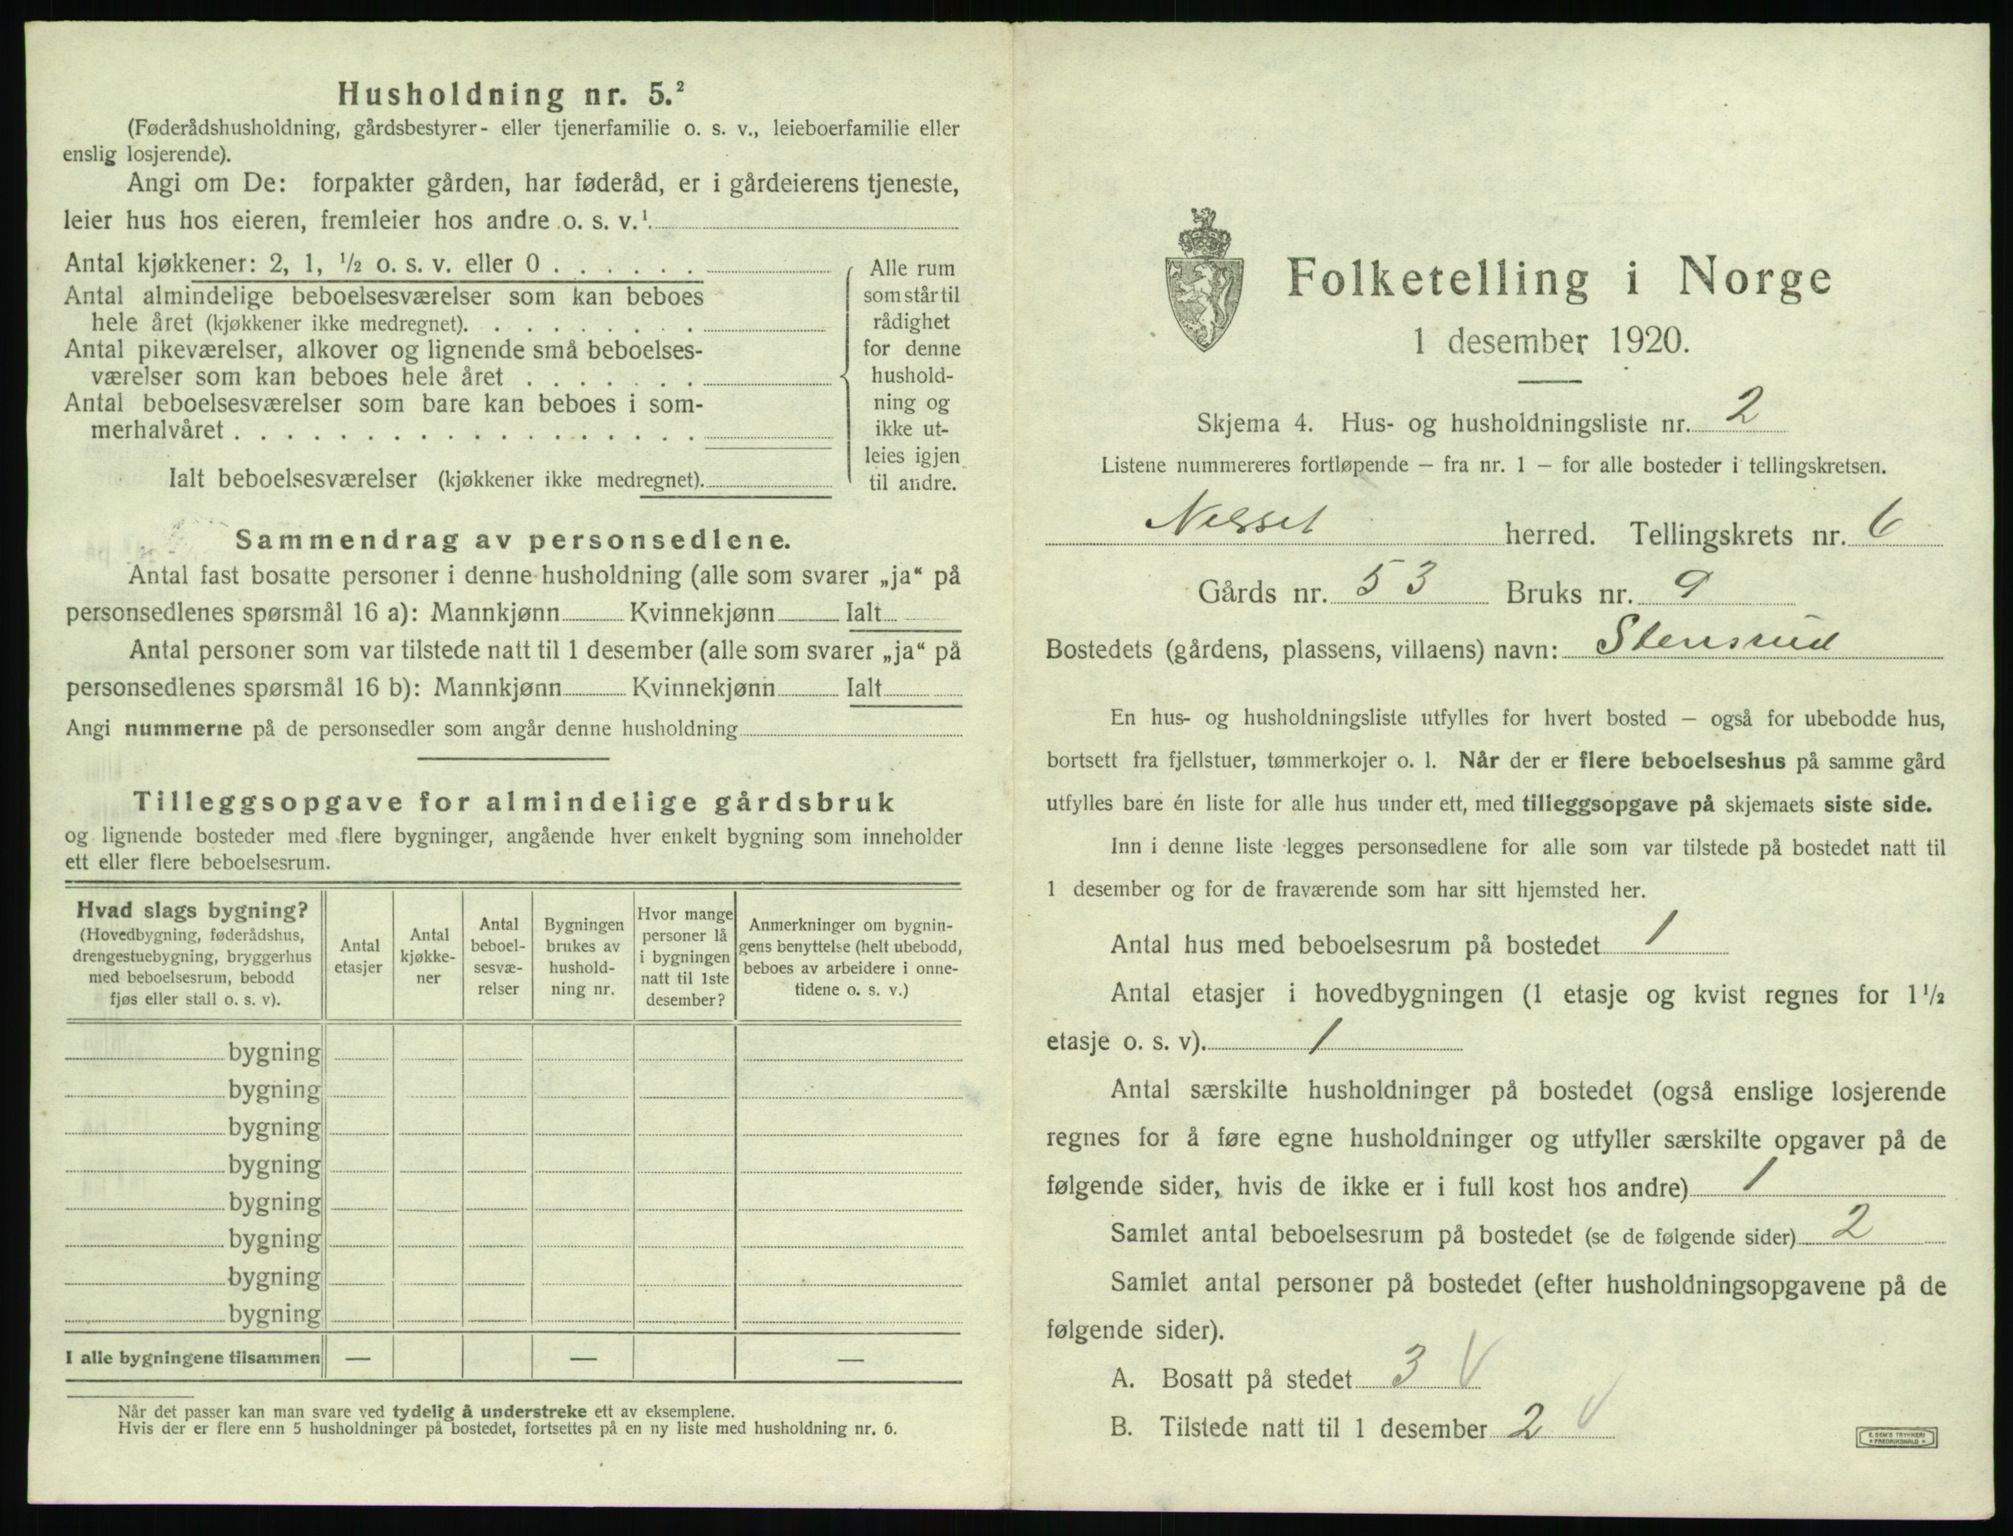 Husholdning nr. 5.²
(Føderådshusholdning, gårdsbestyrer- eller tjenerfamilie o. s. v., leieboerfamilie eller
enslig losjerende).
Angi om De: forpakter gården, har føderåd, er i gårdeierens tjeneste,
leier hus hos eieren, fremleier hos andre o. s. v.¹
Antal kjøkkener: 2, 1, ½ o. s. v. eller 0
Antal almindelige beboelsesværelser som kan beboes
hele året (kjøkkener ikke medregnet).
Antal pikeværelser, alkover og lignende små beboelses-
værelser som kan beboes hele året
Antal beboelsesværelser som bare kan beboes i som-
merhalvåret
Ialt beboelsesværelser (kjøkkener ikke medregnet).
Alle rum
som står til
rådighet
for denne
hushold-
ning og
ikke ut-
leies igjen
til andre.
Sammendrag av personsedlene.
Antal fast bosatte personer i denne husholdning (alle som svarer „ja“ på
personsedlenes spørsmål 16 a): Mannkjønn Kvinnekjønn Ialt
Antal personer som var tilstede natt til 1 desember (alle som svarer „ja“ på
personsedlenes spørsmål 16 b): Mannkjønn Kvinnekjønn Ialt
Angi nummerne på de personsedler som angår denne husholdning
Tilleggsopgave for almindelige gårdsbruk
og lignende bosteder med flere bygninger, angående hver enkelt bygning som inneholder
ett eller flere beboelsesrum.
Hvad slags bygning?
(Hovedbygning, føderådshus,
drengestuebygning, bryggerhus
med beboelsesrum, bebodd
fjøs eller stall o. s. v).
Antal
etasjer
Antal
kjøkke-
ner
Antal
beboel-
sesvæ-
relser
Bygningen
brukes av
hushold-
ning nr.
Hvor mange
personer lå
i bygningen
natt til 1ste
desember?
Anmerkninger om bygnin-
gens benyttelse (helt ubebodd,
beboes av arbeidere i onne-
tidene o. s. v.)
bygning
bygning
bygning
bygning
bygning
bygning
bygning
bygning
I alle bygningene tilsammen — — —
Når det passer kan man svare ved tydelig å understreke ett av eksemplene.
Hvis der er flere enn 5 husholdninger på bostedet, fortsettes på en ny liste med husholdning nr. 6.
Folketelling i Norge
1 desember 1920.
Skjema 4. Hus- og husholdningsliste nr. 2
Listene nummereres fortløpende – fra nr. 1 – for alle bosteder i tellingskretsen.
Nesset herred. Tellingskrets nr. 6
Gårds nr. 53 Bruks nr. 9
Bostedets (gårdens, plassens, villaens) navn: Stensrud
En hus- og husholdningsliste utfylles for hvert bosted – også for ubebodde hus,
bortsett fra fjellstuer, tømmerkojer o. l. Når der er flere beboelseshus på samme gård
utfylles bare én liste for alle hus under ett, med tilleggsopgave på skjemaets siste side.
Inn i denne liste legges personsedlene for alle som var tilstede på bostedet natt til
1 desember og for de fraværende som har sitt hjemsted her.
Antal hus med beboelsesrum på bostedet 1
Antal etasjer i hovedbygningen (1 etasje og kvist regnes for 1½
etasje o. s. v). 1
Antal særskilte husholdninger på bostedet (også enslige losjerende
regnes for å føre egne husholdninger og utfyller særskilte opgaver på de
følgende sider, hvis de ikke er i full kost hos andre) 1
Samlet antal beboelsesrum på bostedet (se de følgende sider) 2
Samlet antal personer på bostedet (efter husholdningsopgavene på de
følgende sider).
A. Bosatt på stedet 3 V
B. Tilstede natt til 1 desember 2 V
E. SEM'S TRYKKERI
FREDRIKSHALD